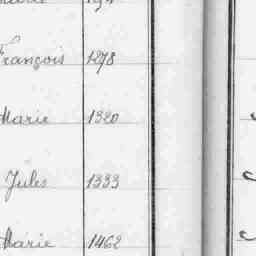 François 1278
Marie 1320
Jules 1333
Marie 1462